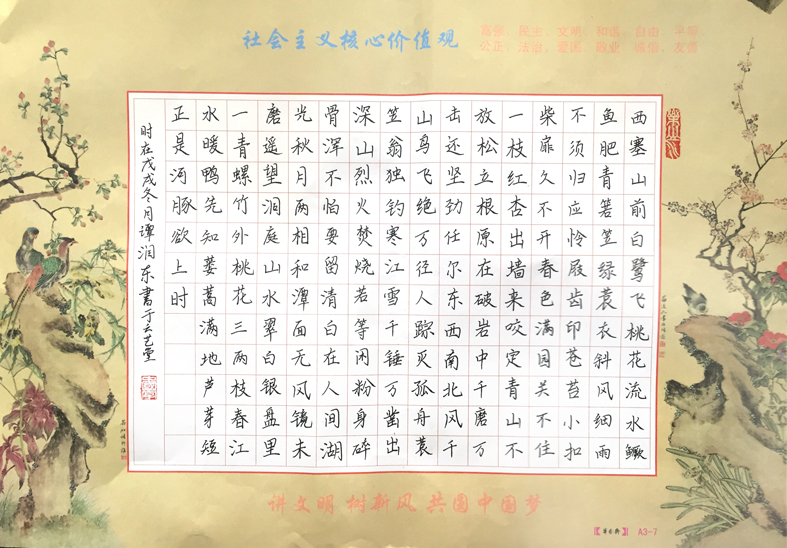 社会主义核心价值观
富强、民主、文明、和谐、自由、平等
公正、法治、爱国、敬业、诚信、友善
西塞山前白鹭飞桃花流水鳜
鱼肥青箬笠绿蓑衣斜风细雨
不须归应怜屐齿印苍苔小扣
柴扉久不开春色满园关不住
一枝红杏出墙来咬定青山不
放松立根原在破岩中千磨万
击还坚劲任尔东西南北风千
山鸟飞绝万径人踪灭孤舟蓑
笠翁独钓寒江雪千锤万凿出
深山烈火焚烧若等闲粉身碎
骨浑不怕要留清白在人间湖
光秋月两相和潭面无风镜未
磨遥望洞庭山水翠白银盘里
一青螺竹外桃花三两枝春江
水暖鸭先知蒌蒿满地芦芽短
正是河豚欲上时
时在戊戌冬月谭润东書于云艺堂
讲文明 树新风 共圆中国梦
A3-7